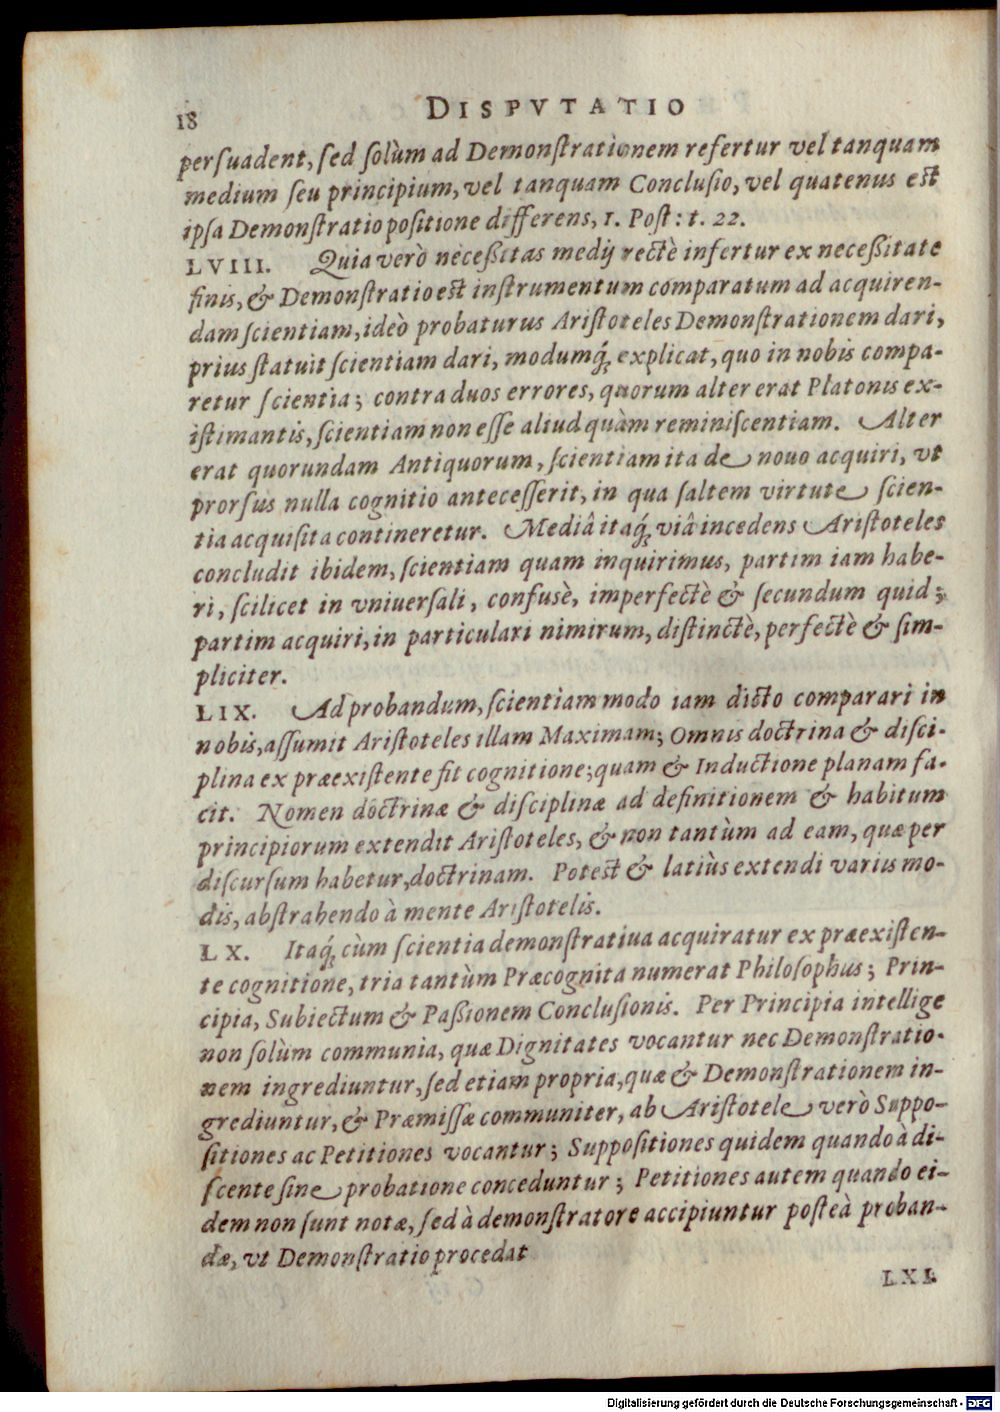 18 DISPVTATIO
perſuadent, ſed ſolùm ad Demonſtrationem refertur vel tanquam
medium ſeu principium, vel tanquam Concluſio, vel quatenus eſt
ipſa Demonſtratio poſitione differens, 1. Poſt: t. 22.
LVIII. Quia verò neceßitas medij rectè infertur ex neceßitate
finis, & Demonſtratio eſt inſtrumentum comparatum ad acquiren-
dam ſcientiam, ideò probaturus Ariſtoteles Demonſtrationem dari,
prius ſtatuit ſcientiam dari, modumq́; explicat, quo in nobis compa-
retur ſcientia; contra duos errores, quorum alter erat Platonis ex-
iſtimantis, ſcientiam non eſſe aliud quàm reminiſcentiam. Alter
erat quorundam Antiquorum, ſcientiam ita de nouo acquiri, vt
prorſus nulla cognitio anteceſſerit, in qua ſaltem virtute ſcien-
tia acquiſita contineretur. Mediâ itaq́; viâ incedens Ariſtoteles
concludit ibidem, ſcientiam quam inquirimus, partim iam habe-
ri, ſcilicet in vniuerſali, confusè, imperfectè & ſecundum quid;
partim acquiri, in particulari nimirum, diſtinctè, perfectè & ſim-
pliciter.
LIX. Ad probandum, ſcientiam modo iam dicto comparari in
nobis, aſſumit Ariſtoteles illam Maximam; Omnis doctrina & diſci-
plina ex præexiſtente fit cognitione; quam & Inductione planam fa-
cit. Nomen doctrinæ & diſciplinæ ad definitionem & habitum
principiorum extendit Ariſtoteles, & non tantùm ad eam, quæ per
diſcurſum habetur, doctrinam. Poteſt & latiùs extendi varius mo-
dis, abſtrahendo à mente Ariſtotelis.
LX. Itaq́; cùm ſcientia demonſtratiua acquiratur ex præexiſten-
te cognitione, tria tantùm Præcognita numerat Philoſophus; Prin-
cipia, Subiectum & Paßionem Concluſionis. Per Principia intellige
non ſolùm communia, quæ Dignitates vocantur nec Demonſtratio-
nem ingrediuntur, ſed etiam propria, quæ & Demonſtrationem in-
grediuntur, & Præmiſſæ communiter, ab Ariſtotele verò Suppo-
ſitiones ac Petitiones vocantur; Suppoſitiones quidem quando à di-
ſcente ſine probatione conceduntur; Petitiones autem quando ei-
dem non ſunt notæ, ſed à demonſtratore accipiuntur poſteà proban-
dæ, vt Demonſtratio procedat
LXI.
Digitalisierung gefördert durch die Deutsche Forschungsgemeinschaft - DFG